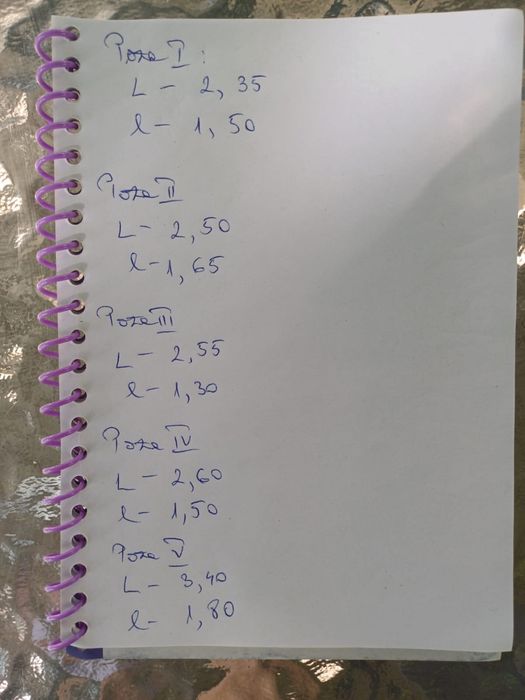 Poza I :
L - 2,35
l - 1,50
Poza II
L - 2,50
l - 1,65
Poza III
L - 2,55
l - 1,30
Poza IV
L - 2,60
l - 1,50
Poza V
L - 3,40
l - 1,80